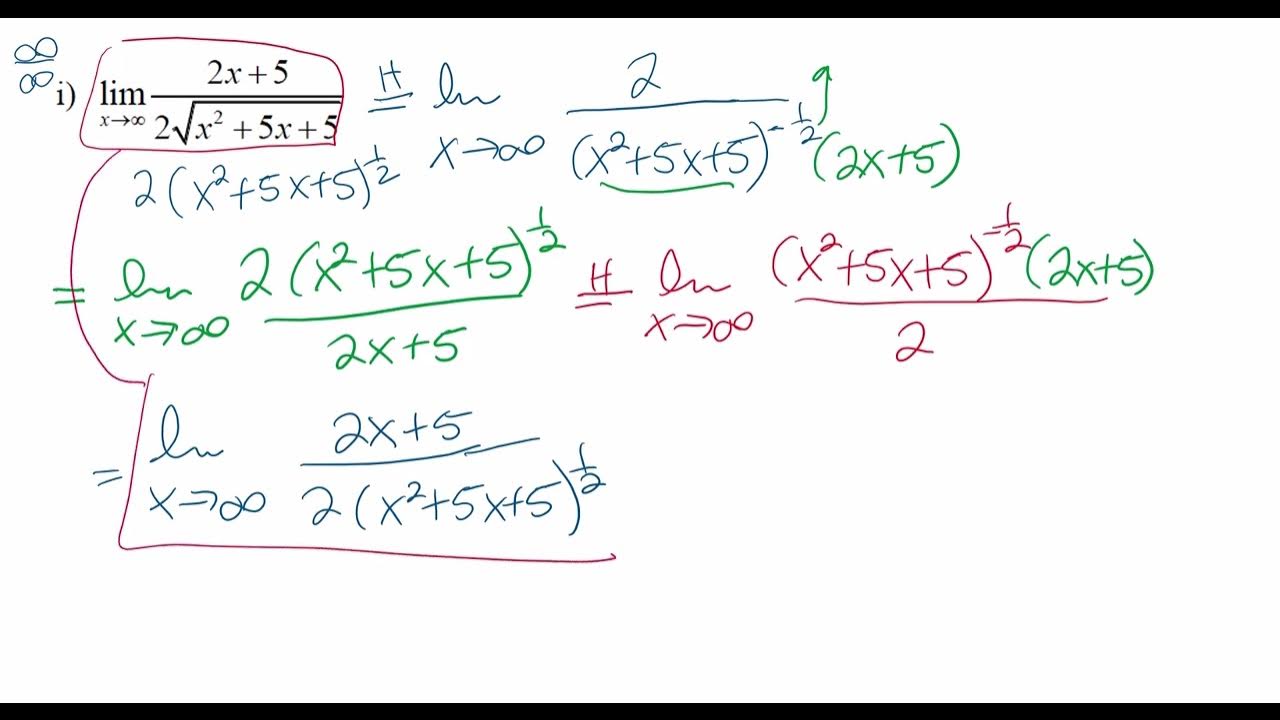 ∞/∞
i) lim x→∞ (2x + 5)/(2√(x² + 5x + 5)) =ᴴ lim x→∞ 2/((x²+5x+5)^(-1/2) (2x+5))
2(x²+5x+5)^(1/2)
= lim x→∞ 2(x²+5x+5)^(1/2)/(2x+5) =ᴴ lim x→∞ (x²+5x+5)^(-1/2)(2x+5)/2
= lim x→∞ (2x+5)/(2(x²+5x+5)^(1/2))